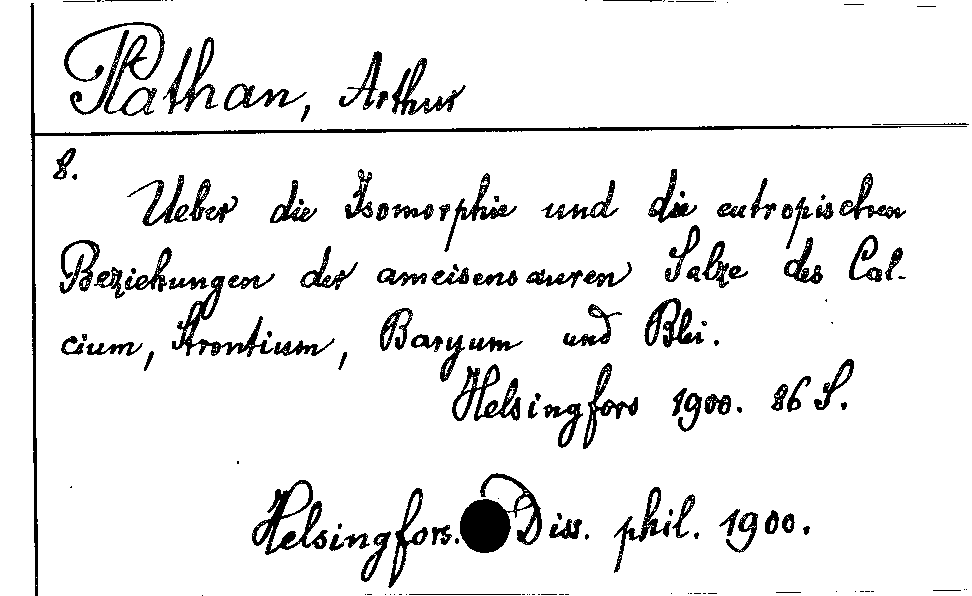 Nathan, Arthur
8.
Ueber die Isomorphie und die eutropischen
Beziehungen der ameisensauren Salze des Cal-
cium, Strontium, Baryum und Blei.
Helsingfors 1900. 86 S.
Helsingfors. Diss. phil. 1900.